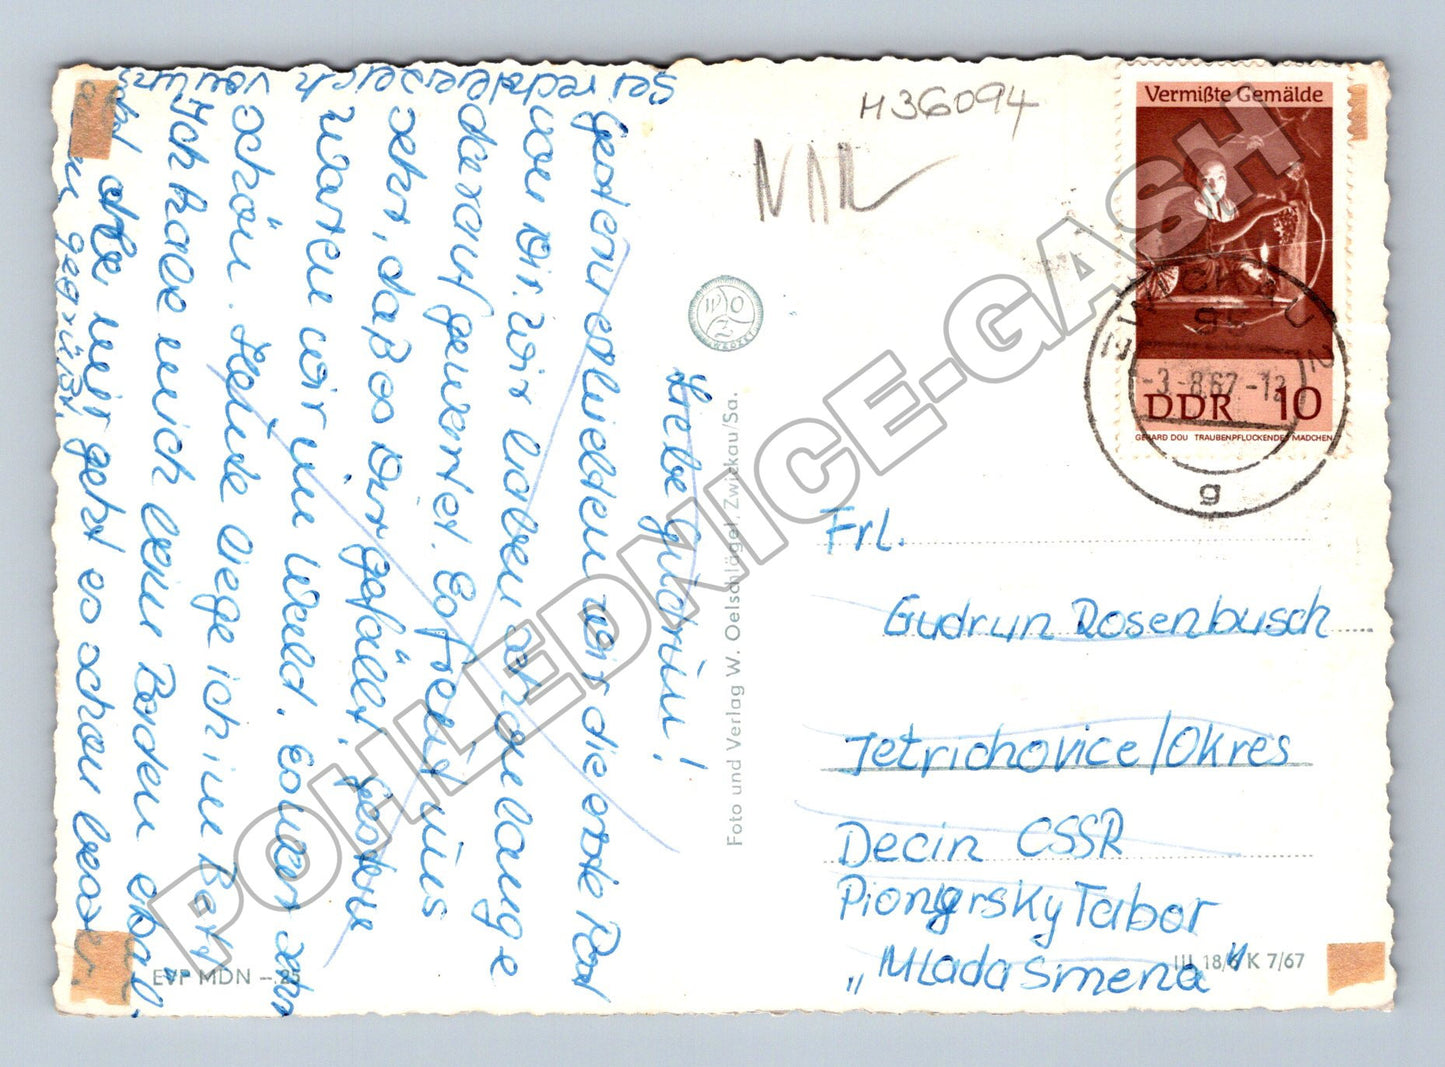 Liebe Gudrun!
Gestern erhielten wir die erste Post
von Dir. Wir haben schon lange
darauf gewartet. Es freut uns
sehr, daß es Dir gefällt. Gestern
waren wir im Wald. Es war sehr
schön. Heute liege ich im Bett.
Ich habe mich beim Baden erkäl
tet aber mir geht es schon besser.
Sei recht herzlich von uns
gegrüßt.
H36094
Vermißte Gemälde
DDR 10
GERARD DOU TRAUBENPFLÜCKENDES MÄDCHEN
ZWICKAU
-3.-8.67-12
g
Foto und Verlag W. Oelschlägel, Zwickau/Sa.
Frl.
Gudrun Rosenbusch
Jetrichovice/Okres
Decin CSSR
Pionyrsky Tabor
„Mlada Smena"
EVP MDN -.25
III 18/6 K 7/67
POHLEDNICE-GASH